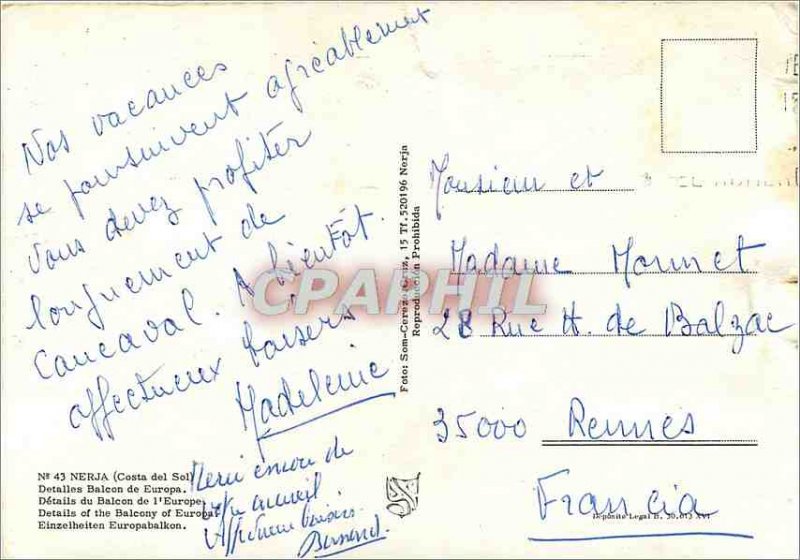 Nos vacances
se poursuivent agréablement
Vous devez profiter
longuement de
Cancaval. A bientôt.
affectueux baisers
Madeleine
Merci encore de
accueil
Affectueux baisers
Bernard
Nº 43 NERJA (Costa del Sol)
Detalles Balcon de Europa.
Détails du Balcon de l'Europe.
Details of the Balcony of Europa.
Einzelheiten Europabalkon.
Foto: Som-Cerezo Cruz, 15 Tf. 520196 Nerja
Reproducción Prohibida
CPAPHIL
Monsieur et
Madame Monnet
28 Rue H. de Balzac
35000 Rennes
Francia
Depósito Legal B. 30.613 XVI